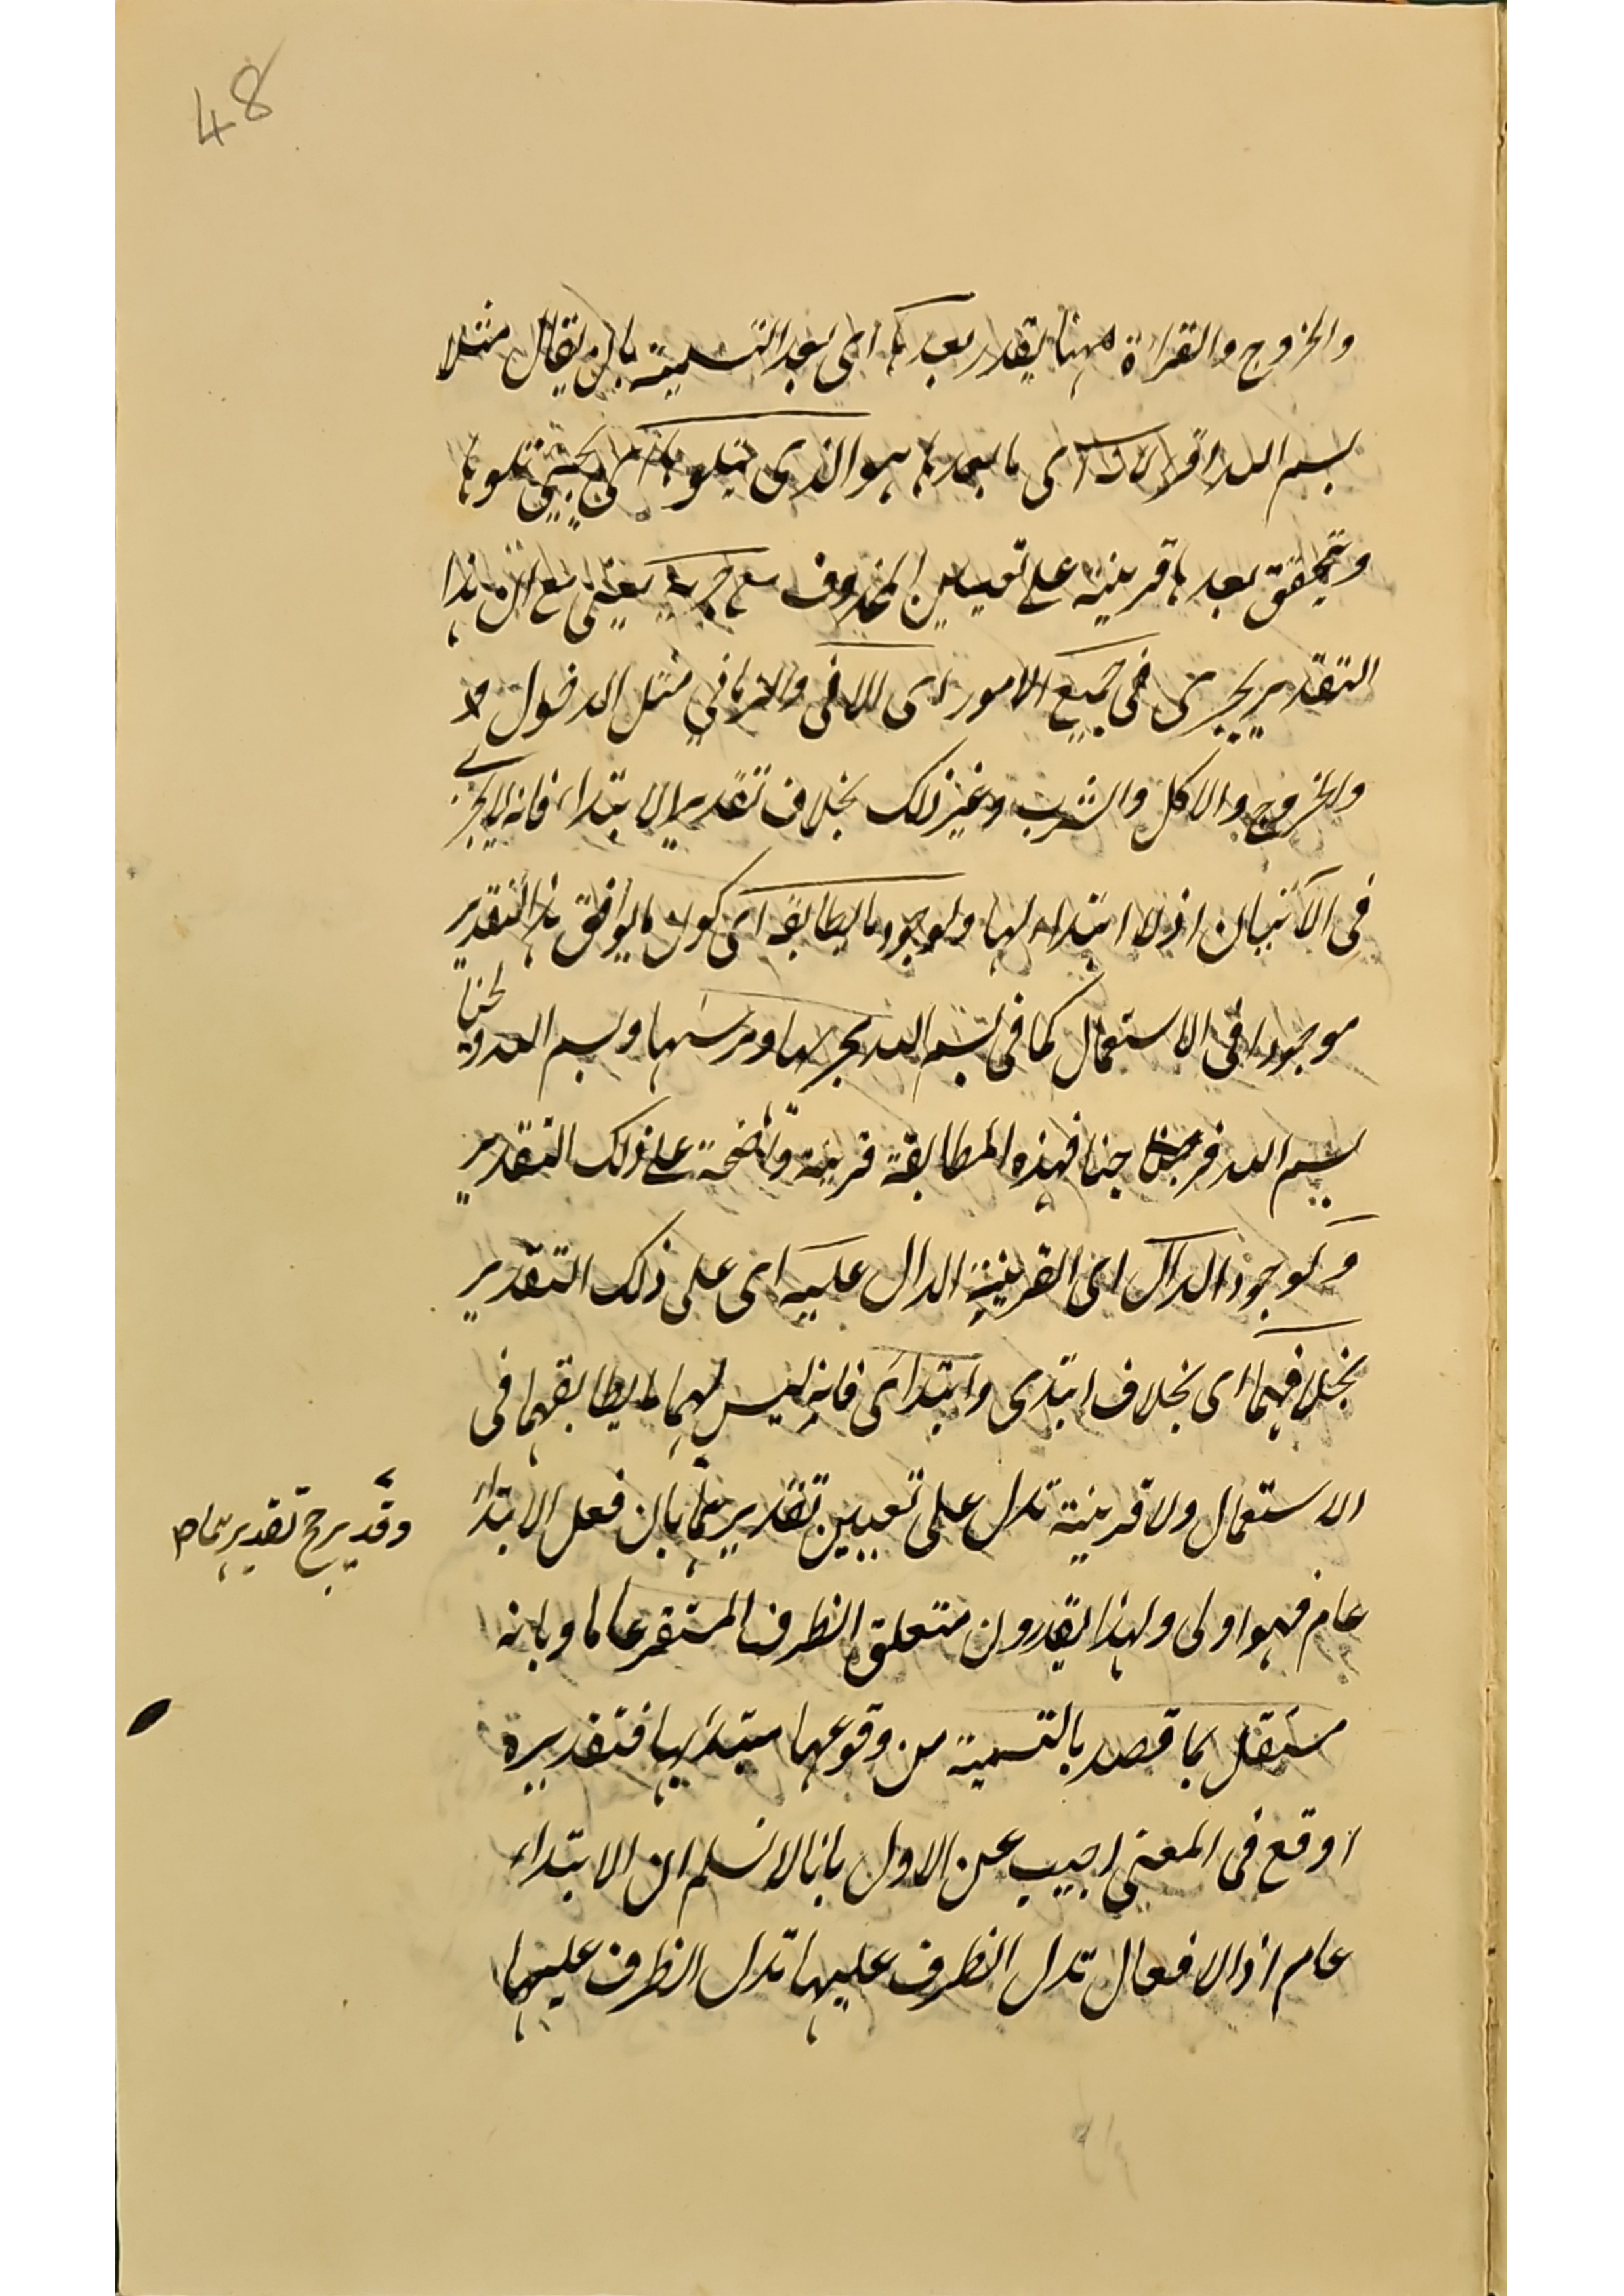 48
والخروج والقراءة ههنا يقدر بعدها اى بعد التسمية بان يقال مثلا
بسم الله اقرأ لان اى ما بعدها هو الذى يتلوها اى يجئ تلوها
ويتحقق بعدها قرينة على تعيين المحذوف مع جريه يعنى مع ان هذا
التقدير يجرى فى جميع الامور اى الآنى والزمانى مثل الدخول و
والخروج والاكل والشرب وغير ذلك بخلاف تقدير الابتداء فانه لا يجرى
فى الآنيات اذ لا ابتداء لها ولوجود ما يطابقه اى كون ما يوافق هذا التقدير
موجودا فى الاستعمال كما فى بسم الله مجريها ومرسيها وبسم الله ولجنا
بسم الله خرجنا فهذه المطابقة قرينة واضحة على ذلك التقدير
ولوجود الدال اى القرينة الدال عليه اى على ذلك التقدير
بخلافهما اى بخلاف ابتدى وابتدائى فانه ليس لهما ما يطابقهما فى
الاستعمال ولا قرينة تدل على تعيين تقديرهما بان فعل الابتداء
وقد يرجح تقديرهما
عام فهو اولى ولهذا يقدرون متعلق الظرف المستقر عاما وبانه
مستقل بما قصد بالتسمية من وقوعها مبتدأ بها فتقديره
اوقع فى المعنى اجيب عن الاول بانا لا نسلم ان الابتداء
عام اذ الافعال تدل الظرف عليها تدل الظرف عليها